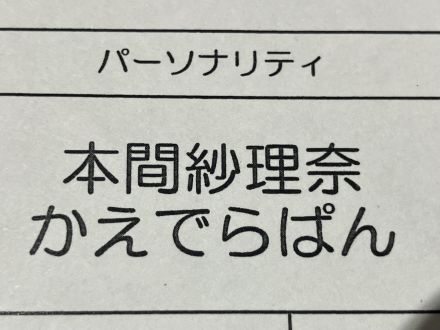 パーソナリティ
本間紗理奈
かえでらぱん